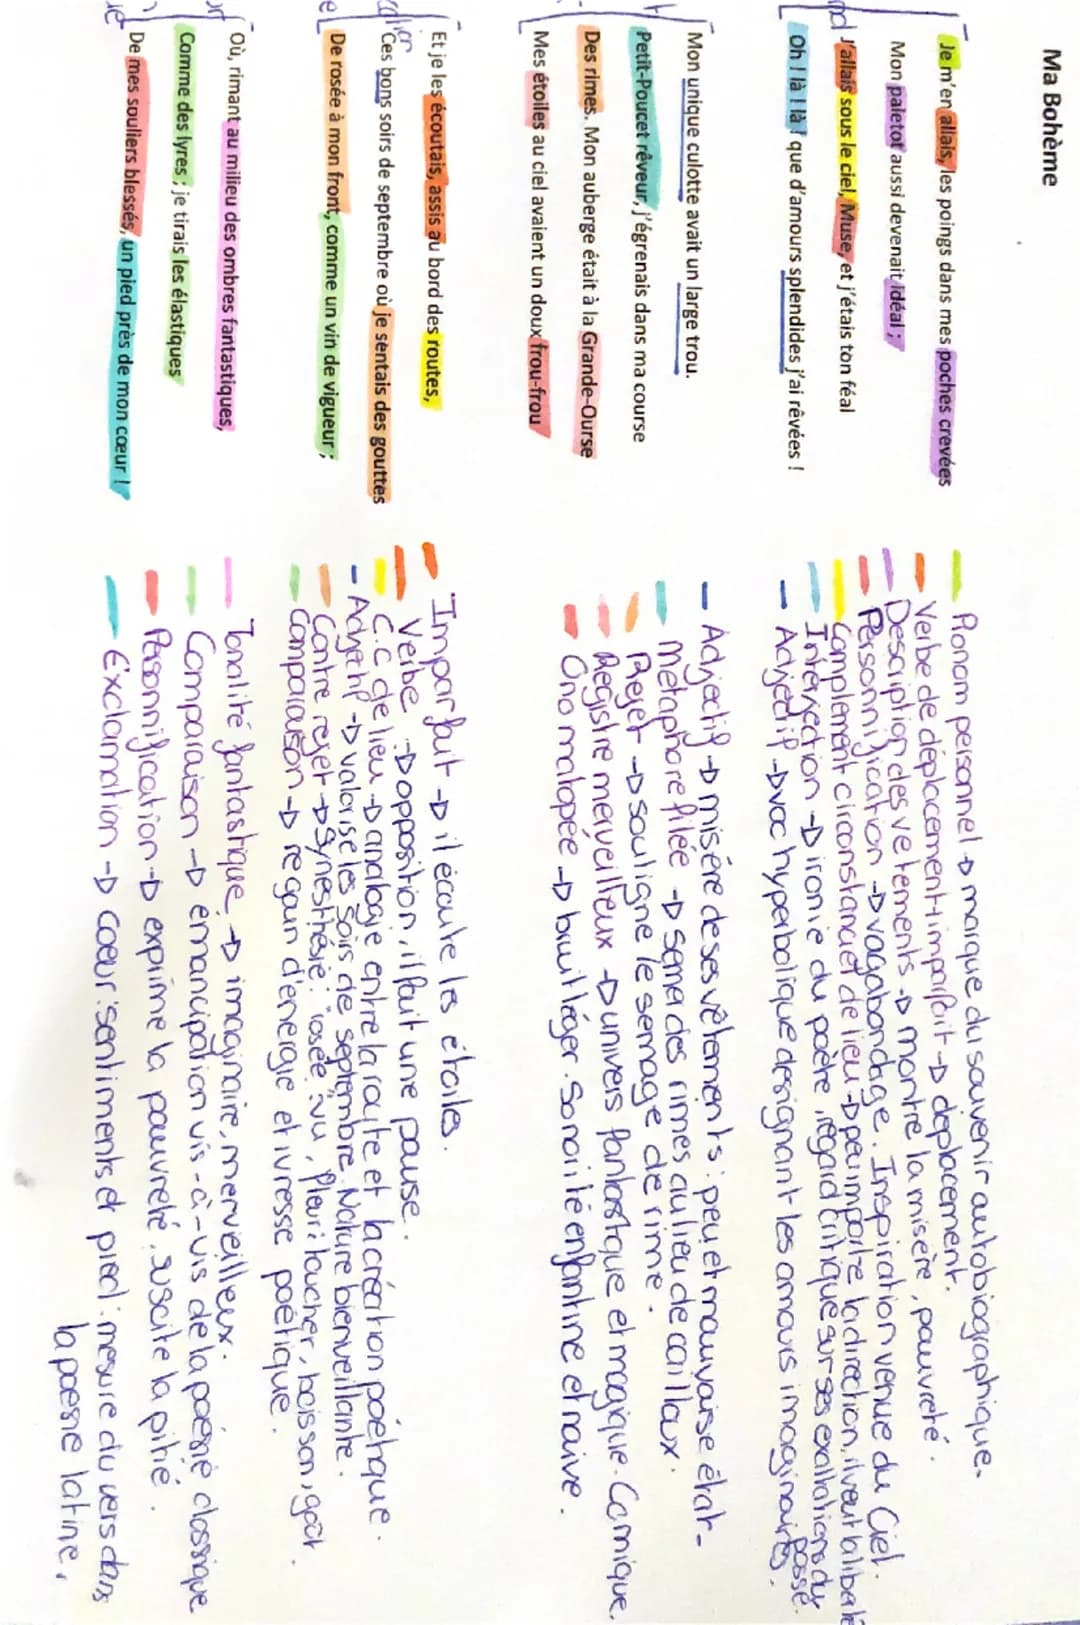 Ma Bohème
Je m'en allais, les poings dans mes poches crevées
Mon paletot aussi devenait idéal ;
J'allais sous le ciel, Muse, et j'étais ton féal
Oh ! là ! là ! que d'amours splendides j'ai rêvées !
Mon unique culotte avait un large trou.
Petit-Poucet rêveur, j'égrenais dans ma course
Des rimes. Mon auberge était à la Grande-Ourse
Mes étoiles au ciel avaient un doux frou-frou
Et je les écoutais, assis au bord des routes,
Ces bons soirs de septembre où je sentais des gouttes
De rosée à mon front, comme un vin de vigueur ;
Où, rimant au milieu des ombres fantastiques,
Comme des lyres ; je tirais les élastiques
De mes souliers blessés, un pied près de mon cœur !
Pronom personnel → marque du souvenir autobiographique.
Verbe de déplacement + imparfait → deplacement.
Description des vetements → montre la misère, pauvreté.
Personnification → vagabondage. Inspiration venue du Ciel.
Complement circonstanciel de lieu → peu importe la direction, il veut la liberté
Interjection → ironie du poète, regard critique sur ses exaltations du passé.
- Adjectif → voc hyperbolique designant les amours imaginaires.
- Adjectif → misère de ses vêtements : peu et mauvaise état -
Métaphore filée → seme des rimes au lieu de cailloux.
Rejet → souligne le semage de rime.
Registre merveilleux → univers fantastique et magique. Comique.
Onomatopée → bruit léger. Sonorité enfantine et naive.
Imparfait → il écoute les étoiles.
Verbe → opposition, il fait une pause.
C.C de lieu → analogie entre la route et la création poétique.
- Adjectif → valorise les soirs de septembre. Nature bienveillante.
Contre rejet → Synesthésie : rosée : vu, pleur : toucher, boisson, goût.
Comparaison → regain d'énergie et ivresse poétique.
Tonalité fantastique → imaginaire, merveilleux.
Comparaison → émancipation vis-à-vis de la poésie classique.
Personnification → exprime la pauvreté, suscite la pitié.
Exclamation → cœur : sentiments et pied : mesure du vers dans
la poesie latine.